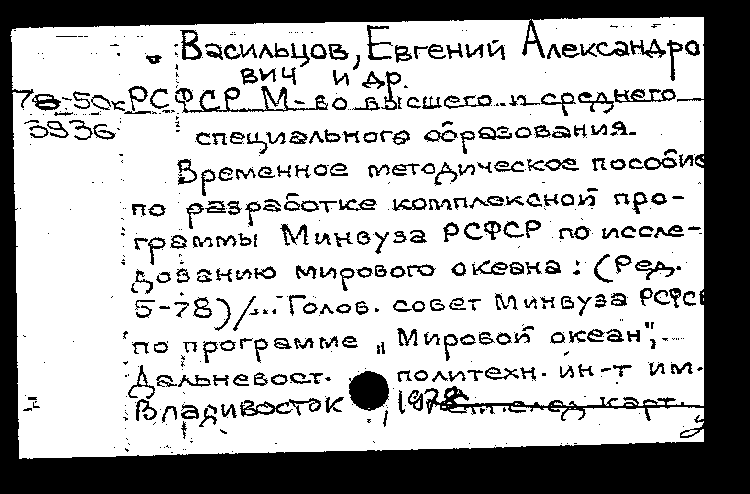 Васильцов, Евгений Александро
вич и др.
78-50к РСФСР М-во высшего и среднего
3936 специального образования.
Временное методическое пособие
по разработке комплексной про-
граммы Минвуза РСФСР по иссле-
дованию мирового океана: (Ред.
5-78)/... Голов. совет Минвуза РСФСР
по программе „Мировой океан",
Дальневост. политехн. ин-т им.
I Владивосток, 1978 след карт.